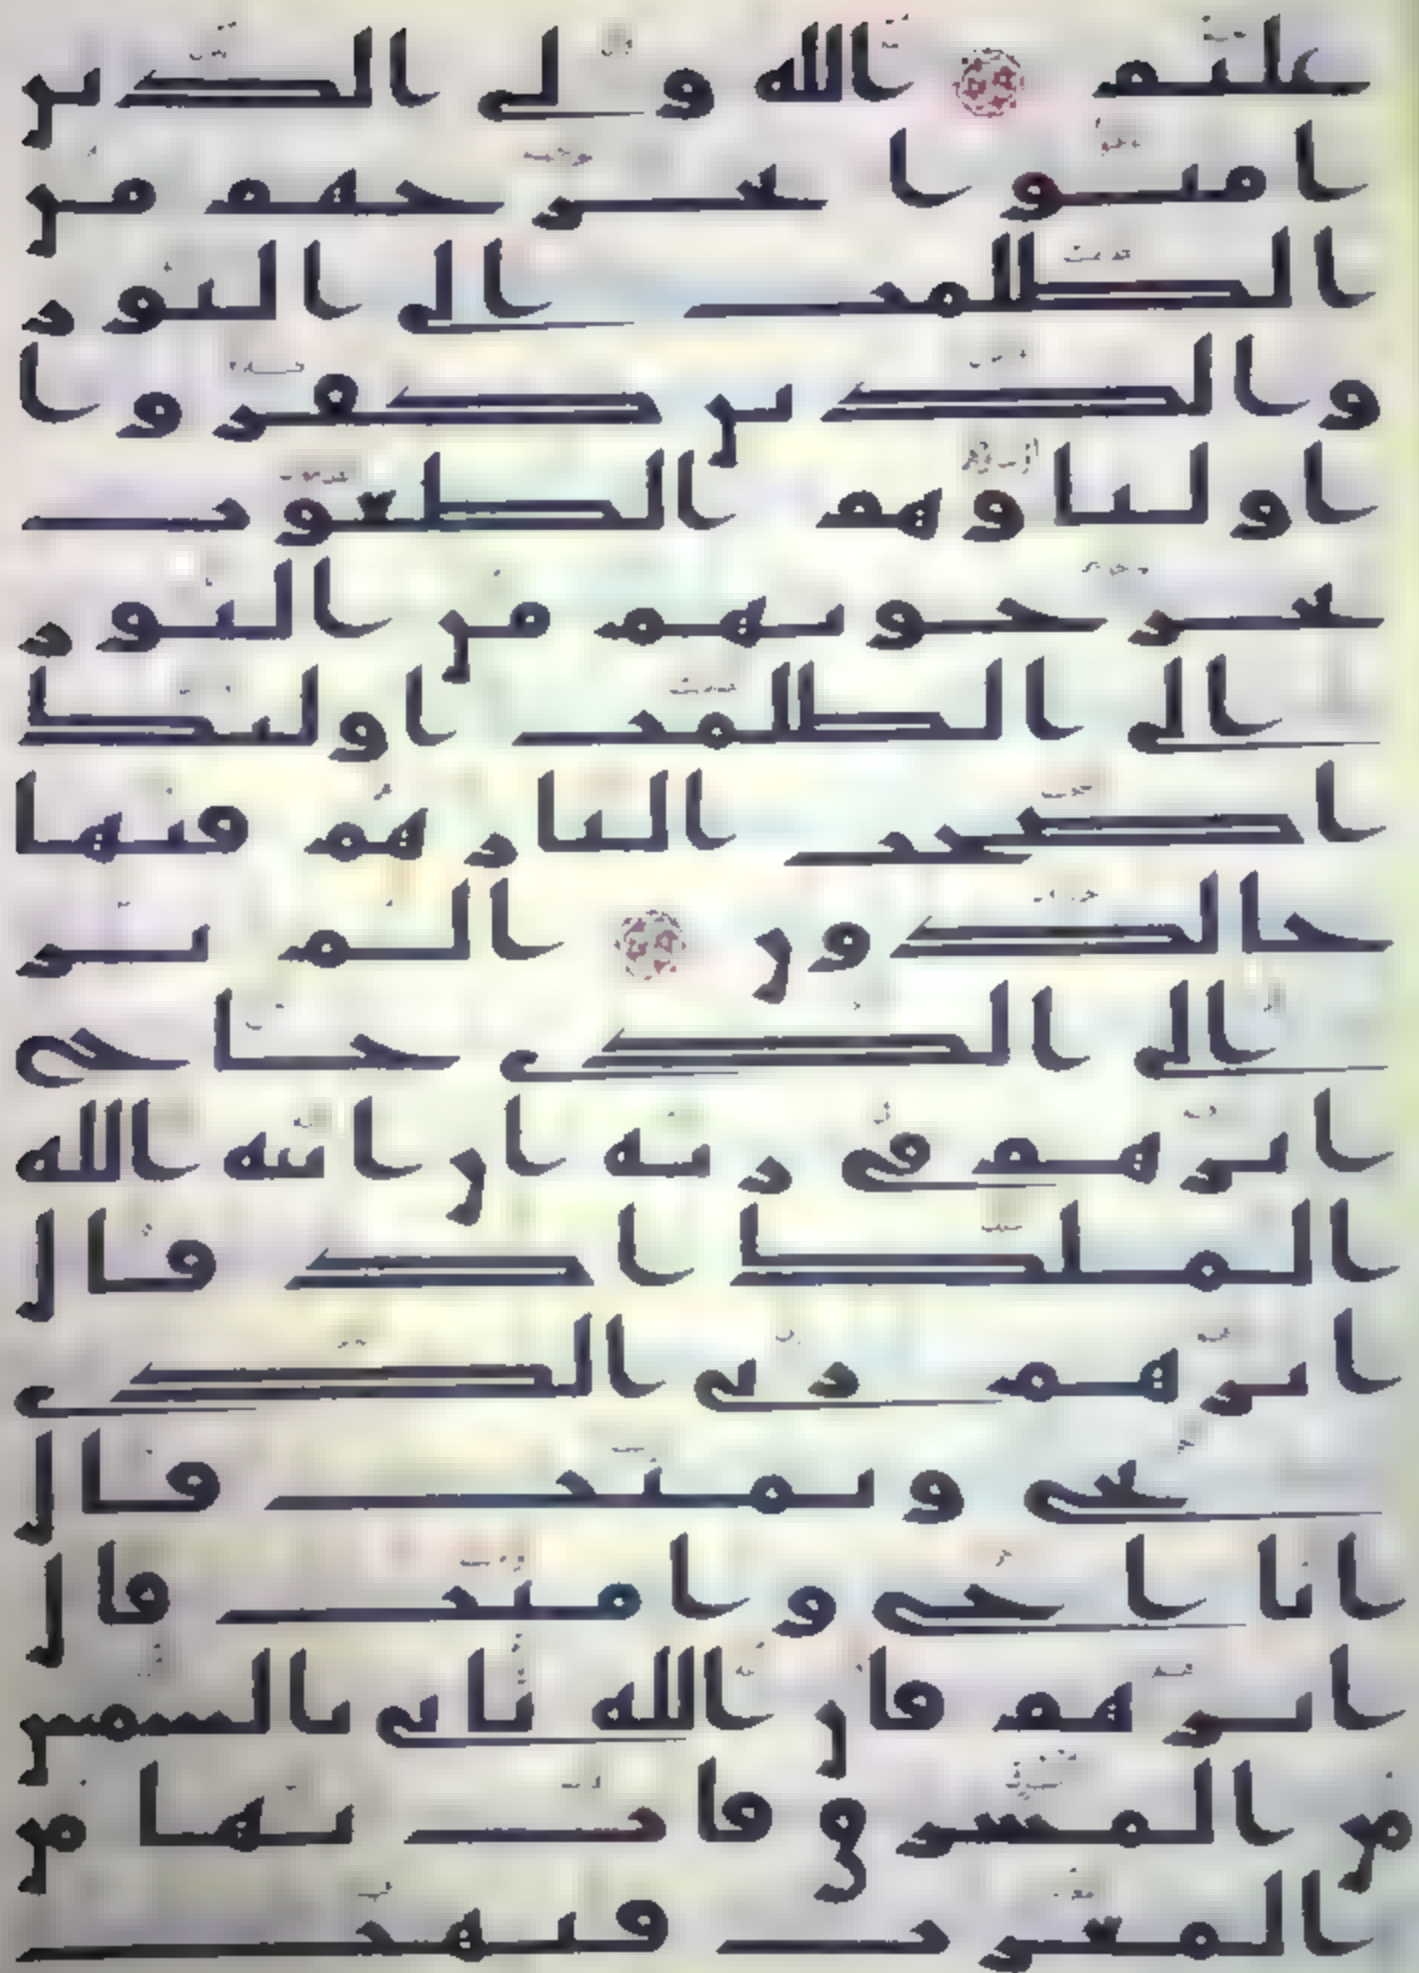 عليم ۝ الله ولى الذين
امنوا يخرجهم من
الظلمت الى النور
والذين كفروا
اولياوهم الطغوت
يخرجونهم من النور
الى الظلمت اولئك
اصحب النار هم فيها
خالدون ۝ الم تر
الى الذى حاج
ابرهم فى ربه ان اتىه الله
الملك اذ قال
ابرهم ربى الذى
يحى ويميت قال
انا احى واميت قال
ابرهم فان الله ياتى بالشمس
من المشرق فات بها من
المغرب فبهت